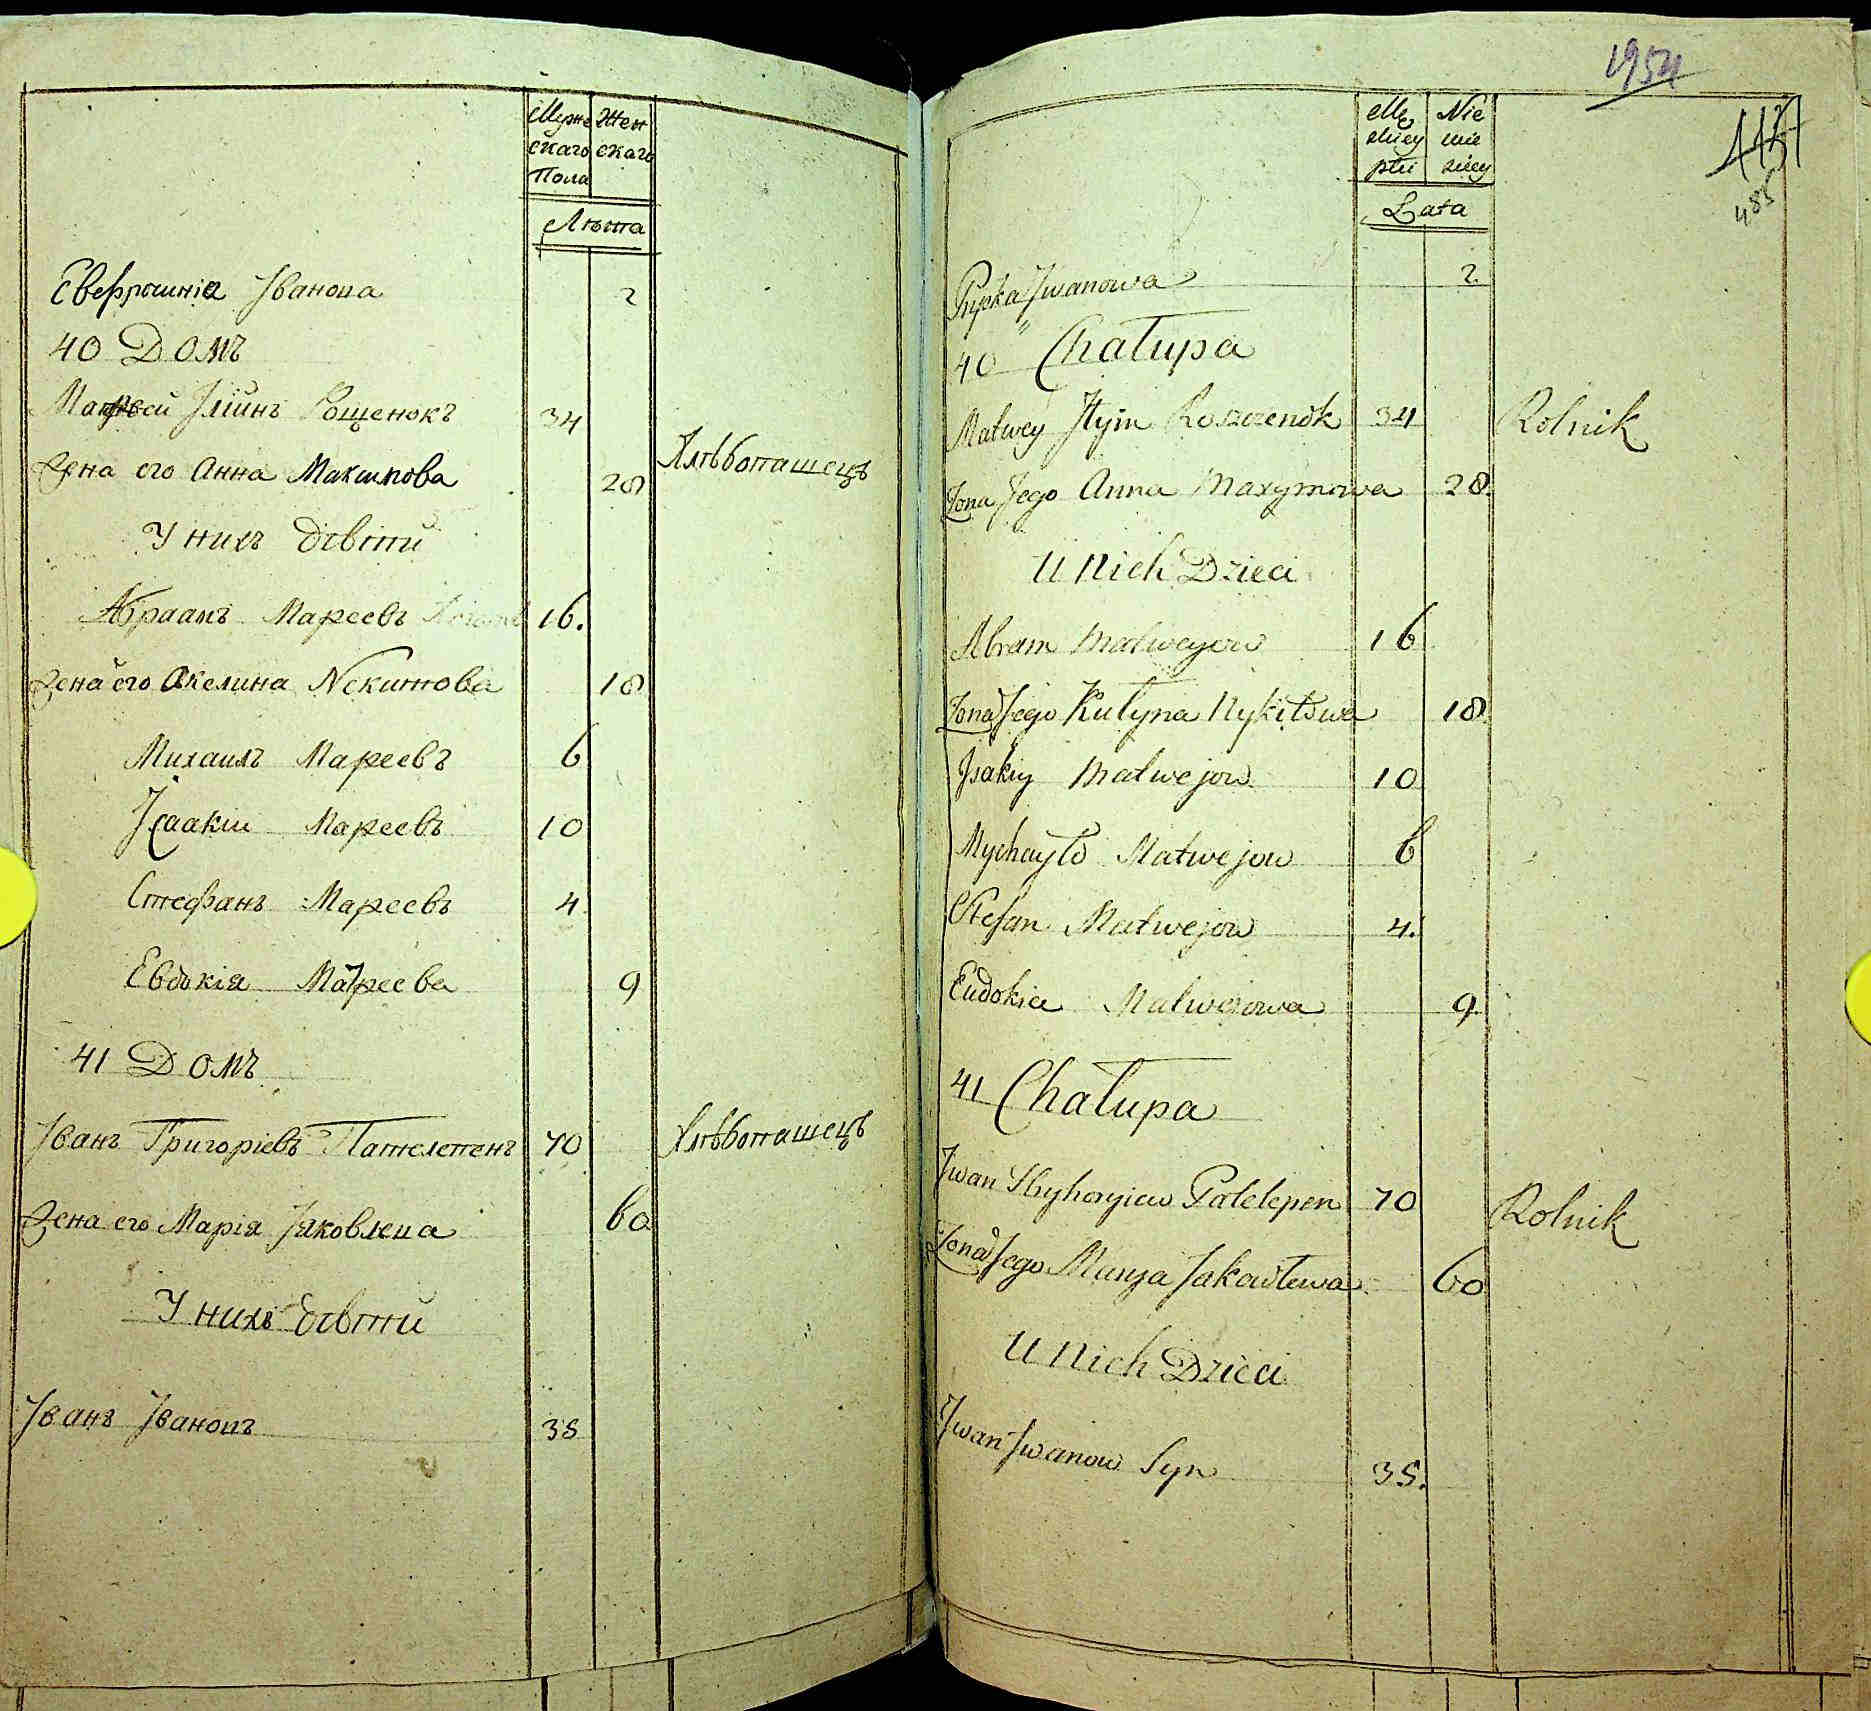 Мужс
скаго
Пола
Жен
скаго
Лѣта
Евфросиніа Іванова 2
40 Домъ
Матѳей Іліинъ Рощенокъ 34
Жена его Анна Максимова 28 Хлѣбопашецъ
У нихъ дѣти
Абраамъ Марѳеевъ 16.
Жена его Акелина Некитова 18
Михаилъ Марѳеевъ 6
Ісаакіи Марѳеевъ 10
Стефанъ Марѳеевъ 4
Евдокія Матѳеева 9
41 Домъ
Іванъ Григоріевъ Пателепенъ 70 Хлѣбопашецъ
Жена его Марія Іяковлева 60
У нихъ дѣти
Іванъ Івановъ 35
1954
485
Lata
Pryska Jwanowa 2
40 Chałupa
Matwey Jlyin Roszczenok 34 Rolnik
Zona Jego Anna Maxymowa 28.
U Nich Dzieci
Abram Matweyow 16
Zona Jego Kulyna Nykitowa 18
Jsakiy Matwejow 10
Mychayło Matwejow 6
Stefan Matwejow 4.
Eudokia Matwejowa 9.
41 Chałupa
Jwan Hryhoryiew Patelepen 70 Rolnik
Zona Jego Marya Jakowlewa 60
U Nich Dzieci
Jwan Jwanow Syn 35.